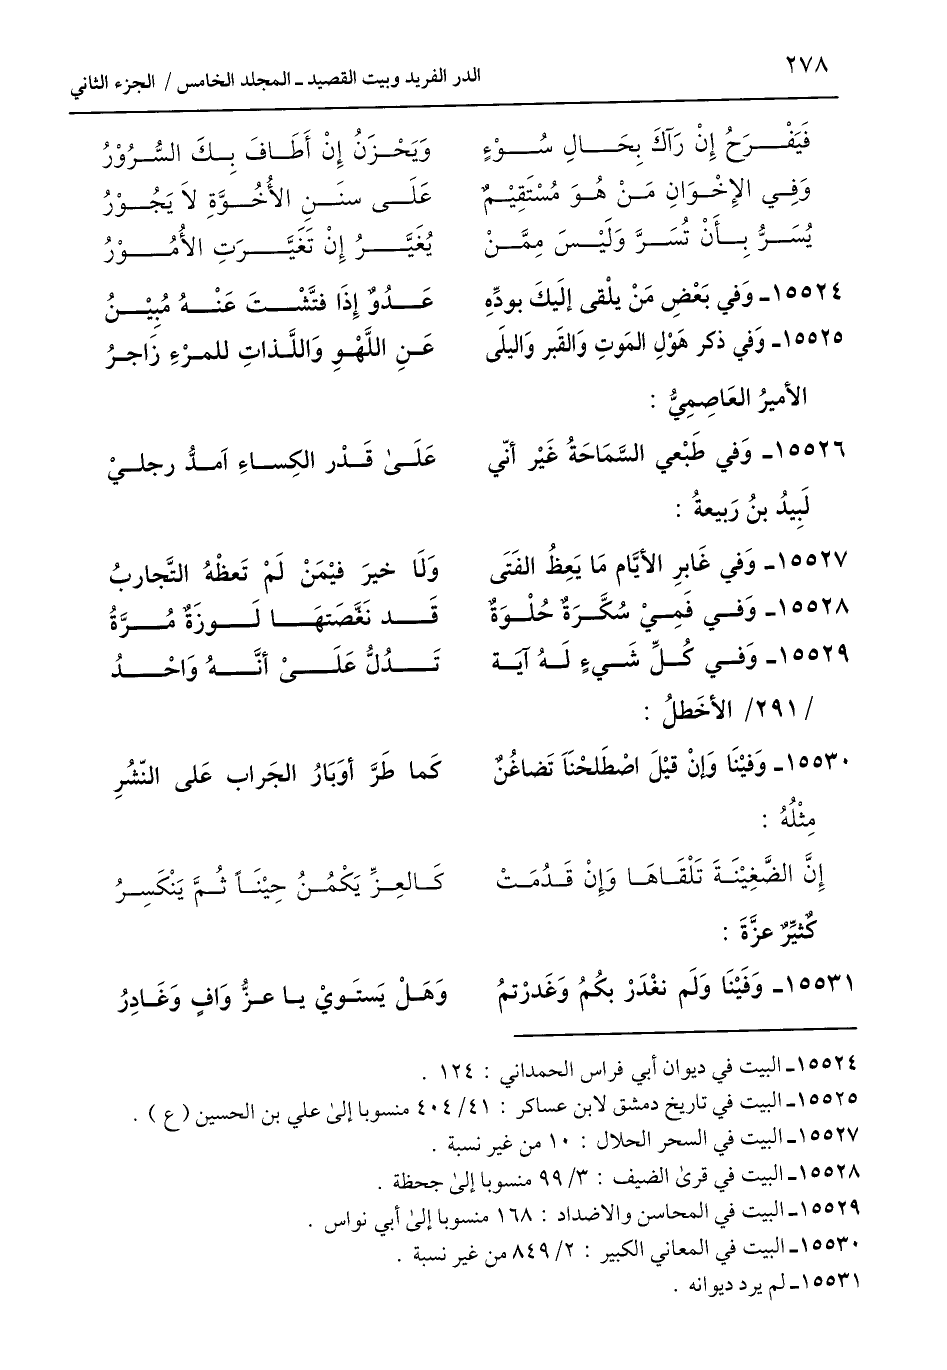 ٢٧٨
الدر الفريد وبيت القصيد ـ المجلد الخامس / الجزء الثاني
فَيَفْـــرَحُ إِنْ رَآكَ بِحَـــالِ سُـــوْءٍ وَيَحْـــزَنُ إِنْ أَطَـــافَ بِـــكَ السُّـــرُوْرُ
وَفِـــي الإِخْـوَانِ مَـــنْ هُـــوَ مُسْتَقِيْـــمٌ عَلَـــى سنَـــنِ الأُخُـــوَّةِ لاَ يَجُـــوْرُ
يُسَـــرُّ بِـــأَنْ تُسَـــرَّ وَلَيْـــسَ مِمَّـــنْ يُغَيَّـــرُ إِنْ تَغَيَّـــرَتِ الأُمُـــوْرُ
١٥٥٢٤ـ وَفي بَعْضِ مَنْ يلْقى إليَكَ بودِّهِ عَـــدُوٌ إذَا فتَّشْـــتَ عَنْـــهُ مُبِيْـــنُ
١٥٥٢٥ـ وَفي ذكر هَوْلِ الموتِ وَالقبر وَالبلَى عَـنِ اللَّهْـوِ وَاللَّـذاتِ للمـرْءِ زَاجـرُ
الأميرُ العَاصِمِيُّ :
١٥٥٢٦ـ وَفي طَبْعي السَّمَاحَةُ غَيْر أنّي عَلَـىٰ قَـدْر الكِسـاءِ اَمـدُّ رجلـيْ
لَبِيدُ بنُ رَبيعةُ :
١٥٥٢٧ـ وَفي غَابرِ الأيَّام مَا يَعِظُ الفَتَى وَلَا خيرَ فيْمَنْ لَمْ تَعظْهُ التَّجاربُ
١٥٥٢٨ـ وَفـــي فَمِـــيْ سُكَّـــرَةٌ حُلْـوَةٌ قَـــد نَغَّصَتهَـــا لَـــوزَةٌ مُـــرَّةُ
١٥٥٢٩ـ وَفـــي كُـــلِّ شَـــيءٍ لَـــهُ آيَـــة تَـــدُلُّ عَلَـــىْ أنَّـــهُ وَاحْـــدُ
/ ٢٩١/ الأخَطلُ :
١٥٥٣٠ـ وَفيْنَا وَإنْ قيْلَ اصْطَلحْنَاَ تَضاغُنٌ كَما طَرَّ أوَبَارُ الجَراب عَلى النّشْرِ
مِثْلُهُ :
إنَّ الضَّغِيْنَـةَ تَلْقَـاهَـا وَإنْ قَـدُمَـتْ كَـالعِـزِّ يَكْمُـنُ حِيْنَـاً ثُـمَّ يَنْكَسِـرُ
كُثيِّرٌ عزَّةَ :
١٥٥٣١ـ وَفَيْنَا وَلَم نغْدَرْ بكُمُ وَغَدرْتمُ وَهَـلْ يَستَـويْ يـا عـزُّ وَافٍ وَغَـادِرُ
١٥٥٢٤ـ البيت في ديوان أبي فراس الحمداني : ١٢٤ .
١٥٥٢٥ـ البيت في تاريخ دمشق لابن عساكر : ٤١/ ٤٠٤ منسوبا إلىٰ علي بن الحسين (ع) .
١٥٥٢٧ـ البيت في السحر الحلال : ١٠ من غير نسبة .
١٥٥٢٨ـ البيت في قرىٰ الضيف : ٣/ ٩٩ منسوبا إلىٰ جحظة .
١٥٥٢٩ـ البيت في المحاسن والاضداد : ١٦٨ منسوبا إلىٰ أبي نواس .
١٥٥٣٠ـ البيت في المعاني الكبير : ٢/ ٨٤٩ من غير نسبة .
١٥٥٣١ـ لم يرد ديوانه .